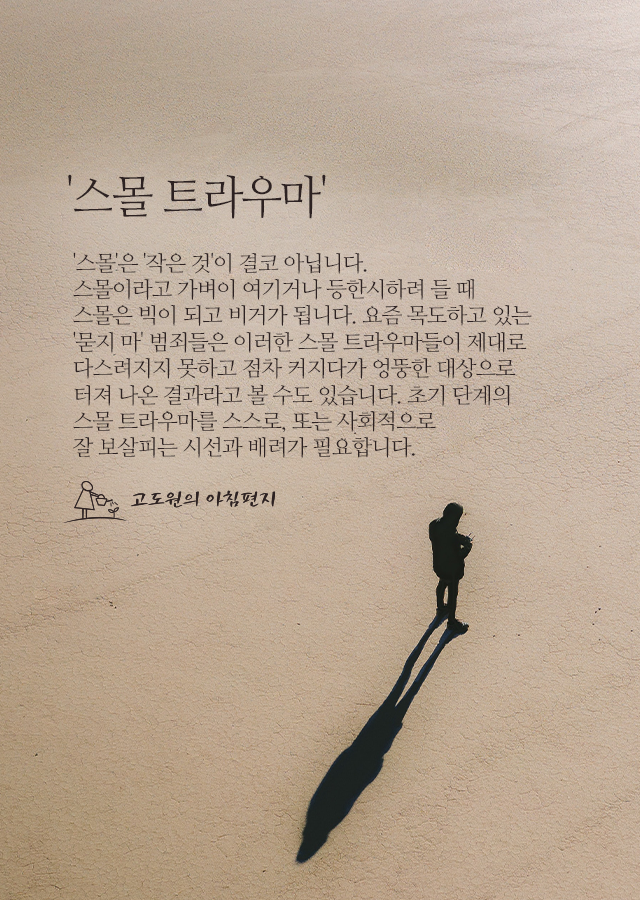 '스몰 트라우마'
'스몰'은 '작은 것'이 결코 아닙니다.
스몰이라고 가벼이 여기거나 등한시하려 들 때
스몰은 빅이 되고 비거가 됩니다. 요즘 목도하고 있는
'묻지 마' 범죄들은 이러한 스몰 트라우마들이 제대로
다스려지지 못하고 점차 커지다가 엉뚱한 대상으로
터져 나온 결과라고 볼 수도 있습니다. 초기 단계의
스몰 트라우마를 스스로, 또는 사회적으로
잘 보살피는 시선과 배려가 필요합니다.
고도원의 아침편지